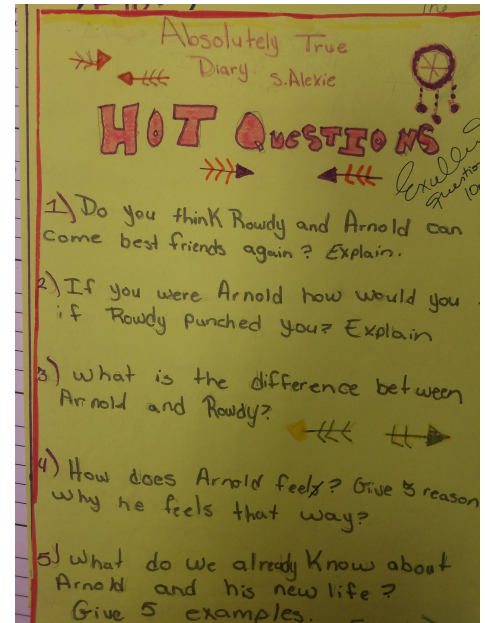 The
Absolutely True
Diary S. Alexie
HOT QUESTIONS
1) Do you think Rowdy and Arnold can
come best friends again? Explain.
2) If you were Arnold how would you
if Rowdy punched you? Explain
3) What is the difference between
Arnold and Rowdy?
4) How does Arnold feel? Give 3 reason
why he feels that way?
5) What do we already Know about
Arnold and his new life?
Give 5 examples.